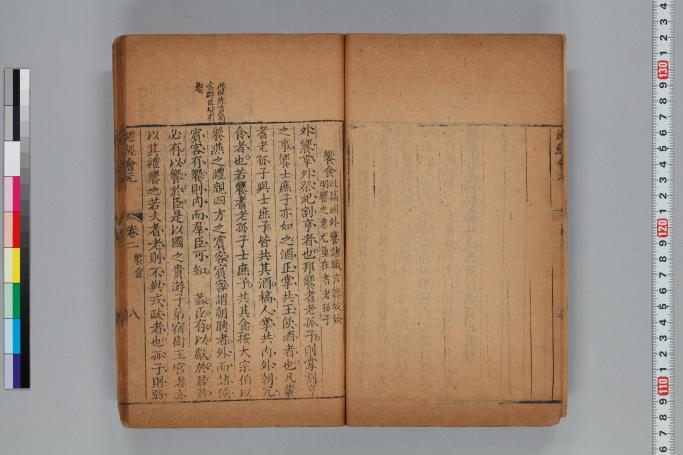 饗食
此篇因外饔諸職言饗故論
明饗之意尤重在耆老孤子
外饔掌外祭祀割亨者也邦饗耆老孤子則掌割亨
之事饗士庶子亦如之酒正掌共王飲酒者也凡饗
耆老孤子與士庶子皆共其酒槁人掌共內外朝冗
食者也若饗耆老孤子士庶子共其食按大宗伯以
饗燕之禮親四方之賓客賓客謂朝聘者外而諸侯
賓客有饗則內而羣臣可知 羣臣有以獻於君君
必有以饗於臣是以國之貴游子弟宿衛王宮者亦
以其禮饗之若夫耆老則不與戎政者也孤子則弱
禮經會元
卷二
饗食
八